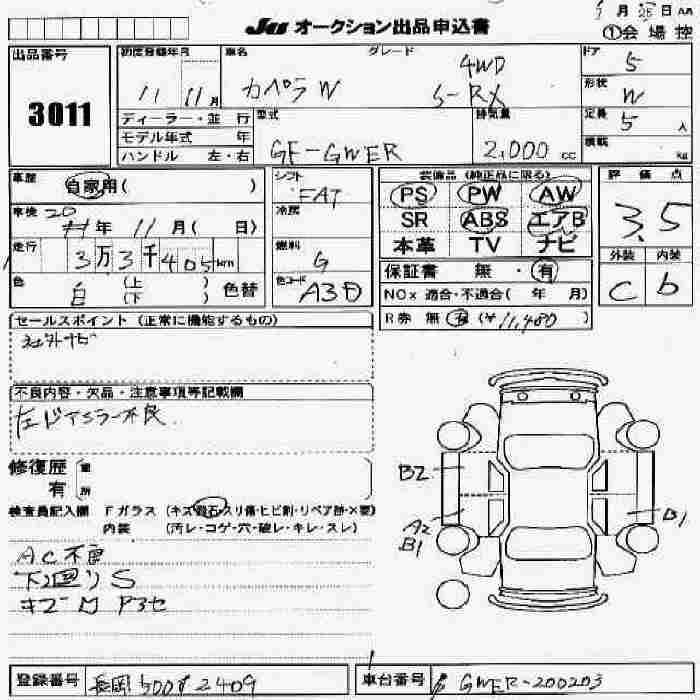 Ju オークション出品申込書
月 日
①会場控
出品番号
3011
初度登録年月
11 11月
車名
カペラW
グレード
4WD
S-RX
ドア
5
形状
W
ディーラー・並行
モデル年式 年
ハンドル 左・右
型式
GF-GWER
排気量
2,000 cc
定員
5人
積載
kg
車歴
自家用( )
車検 20
年 11月( 日)
走行
3万3千405km
色
白 (上)(下) 色替
シフト
FAT
冷房
燃料
G
色コード
A3D
装備品(純正品に限る)
PS PW AW
SR ABS エアB
本革 TV ナビ
保証書 無・有
NOx 適合・不適合( 年 月)
R券 無 有 (¥11,480)
評価点
3.5
外装 内装
C b
セールスポイント(正常に機能するもの)
社外ナビ
不良内容・欠品・注意事項等記載欄
左ドアミラー不良
修復歴
有
検査員記入欄 Fガラス (キズ・飛石・スリ傷・ヒビ割・リペア跡・X要)
内装 (汚レ・コゲ・穴・破レ・キレ・スレ)
AC不良
下廻りS
B2
A2
B1
B1
登録番号
長岡 500 2409
車台番号
GWER-200203